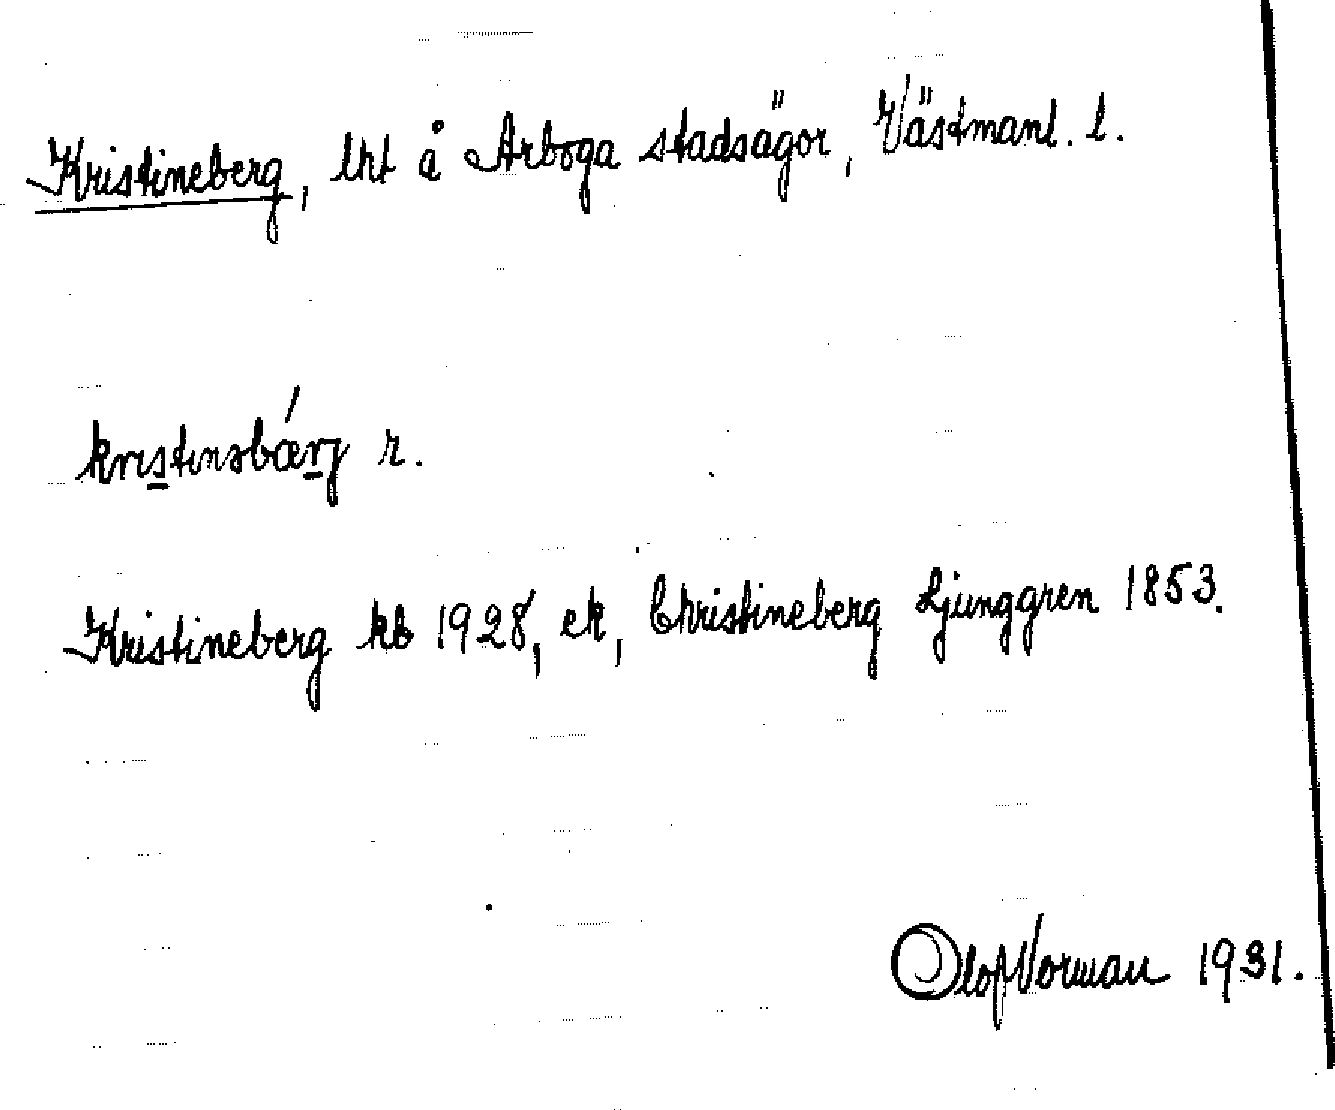 Kristineberg, lht å Arboga stadsägor, Västmanl. l.
kristinəbǽrj r.
Kristineberg kb 1928, ek, Christineberg Ljunggren 1853.
Olof Norman 1931.